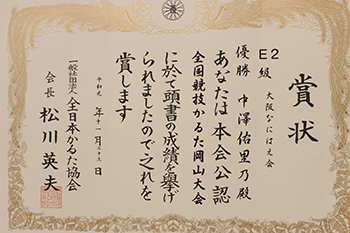 賞状
E2級
大阪なにはえ会
優勝 中澤佑里乃殿
あなたは本会公認
全国競技かるた岡山大会
に於て頭書の成績を挙げ
られましたので之れを
賞します
令和元年十一月 日
一般社団法人全日本かるた協会
会長 松川英夫